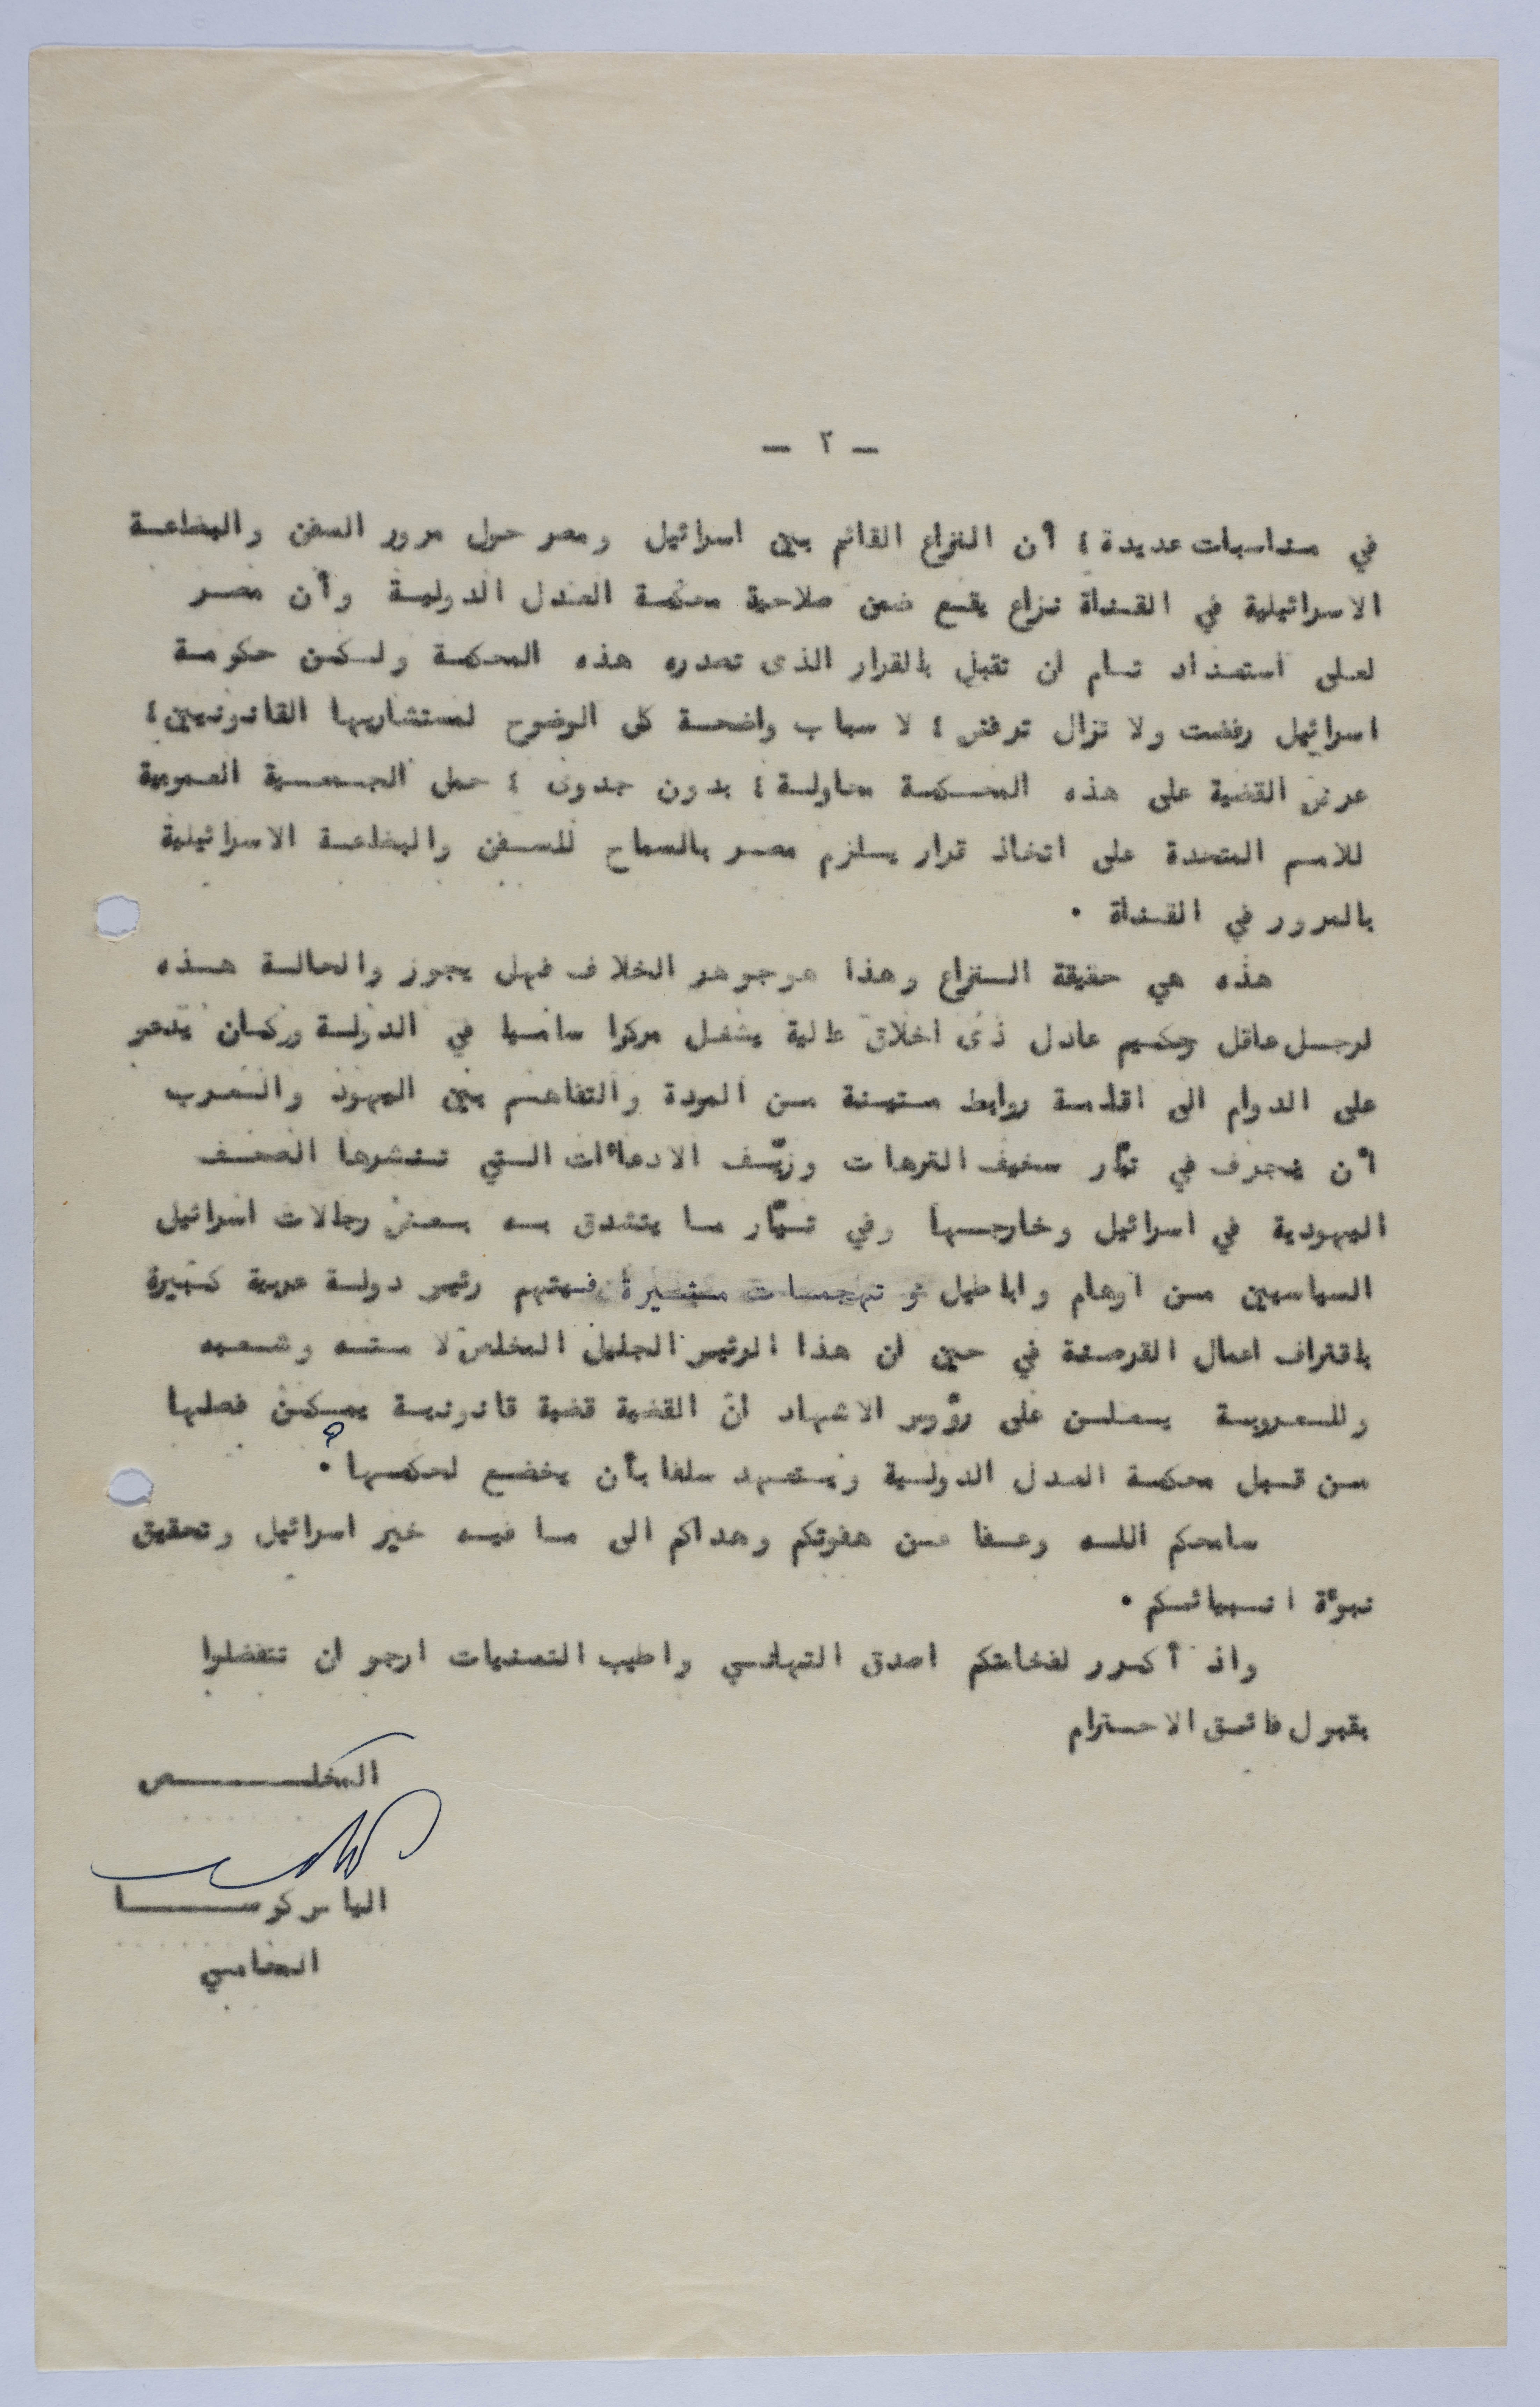 — ٢ —
في مناسبات عديدة ، أن النزاع القائم بين اسرائيل ومصر حول مرور السفن والبضاعة
الاسرائيلية في القناة نزاع يقع ضمن صلاحية محكمة العدل الدولية وأن مصر
لعلى استعداد تام ان تقبل بالقرار الذى تصدره هذه المحكمة ولكن حكومة
اسرائيل رفضت ولا تزال ترفض ، لا سباب واضحة كل الوضوح لمستشاريها القانونيين ،
عرض القضية على هذه المحكمة محاولة ، بدون جدوى ، حمل الجمعية العمومية
للامم المتحدة على اتخاذ قرار يلزم مصر بالسماح للسفن والبضاعة الاسرائيلية
بالمرور في القناة .
هذه هي حقيقة النزاع وهذا هو جوهر الخلاف فهل يجوز والحالة هذه
لرجل عاقل حكيم عادل ذى اخلاق عالية يشغل مركزا ساميا في الدولة وكان يدعو
على الدوام الى اقامة روابط متينة من المودة والتفاهم بين اليهود والعرب
أن ينجرف في تيّار سخيف الترهات وزيّف الادعاءات التي تنشرها الصحف
اليهودية في اسرائيل وخارجها وفي تيّار ما يتشدق به بعض رجالات اسرائيل
السياسيين من اوهام واباطيل و تهجمات مثيرة فيتهم رئيس دولة عربية كبيرة
باقتراف اعمال القرصنة في حين ان هذا الرئيس الجليل المخلص لا مته وشعبه
وللعروبة يعلن على رؤوس الاشهاد ان القضية قضية قانونية يمكن فصلها
من قبل محكمة العدل الدولية ويتعهد سلفا بأن يخضع لحكمها ؟
سامحكم الله وعفا عن هفوتكم وهداكم الى ما فيه خير اسرائيل وتحقيق
نبوءة انبيائكم .
واذ أكرر لفخامتكم اصدق التهاني واطيب التمنيات ارجو ان تتفضلوا
بقبول فائق الاحترام
المخلص
الياس كوسا
المحامي